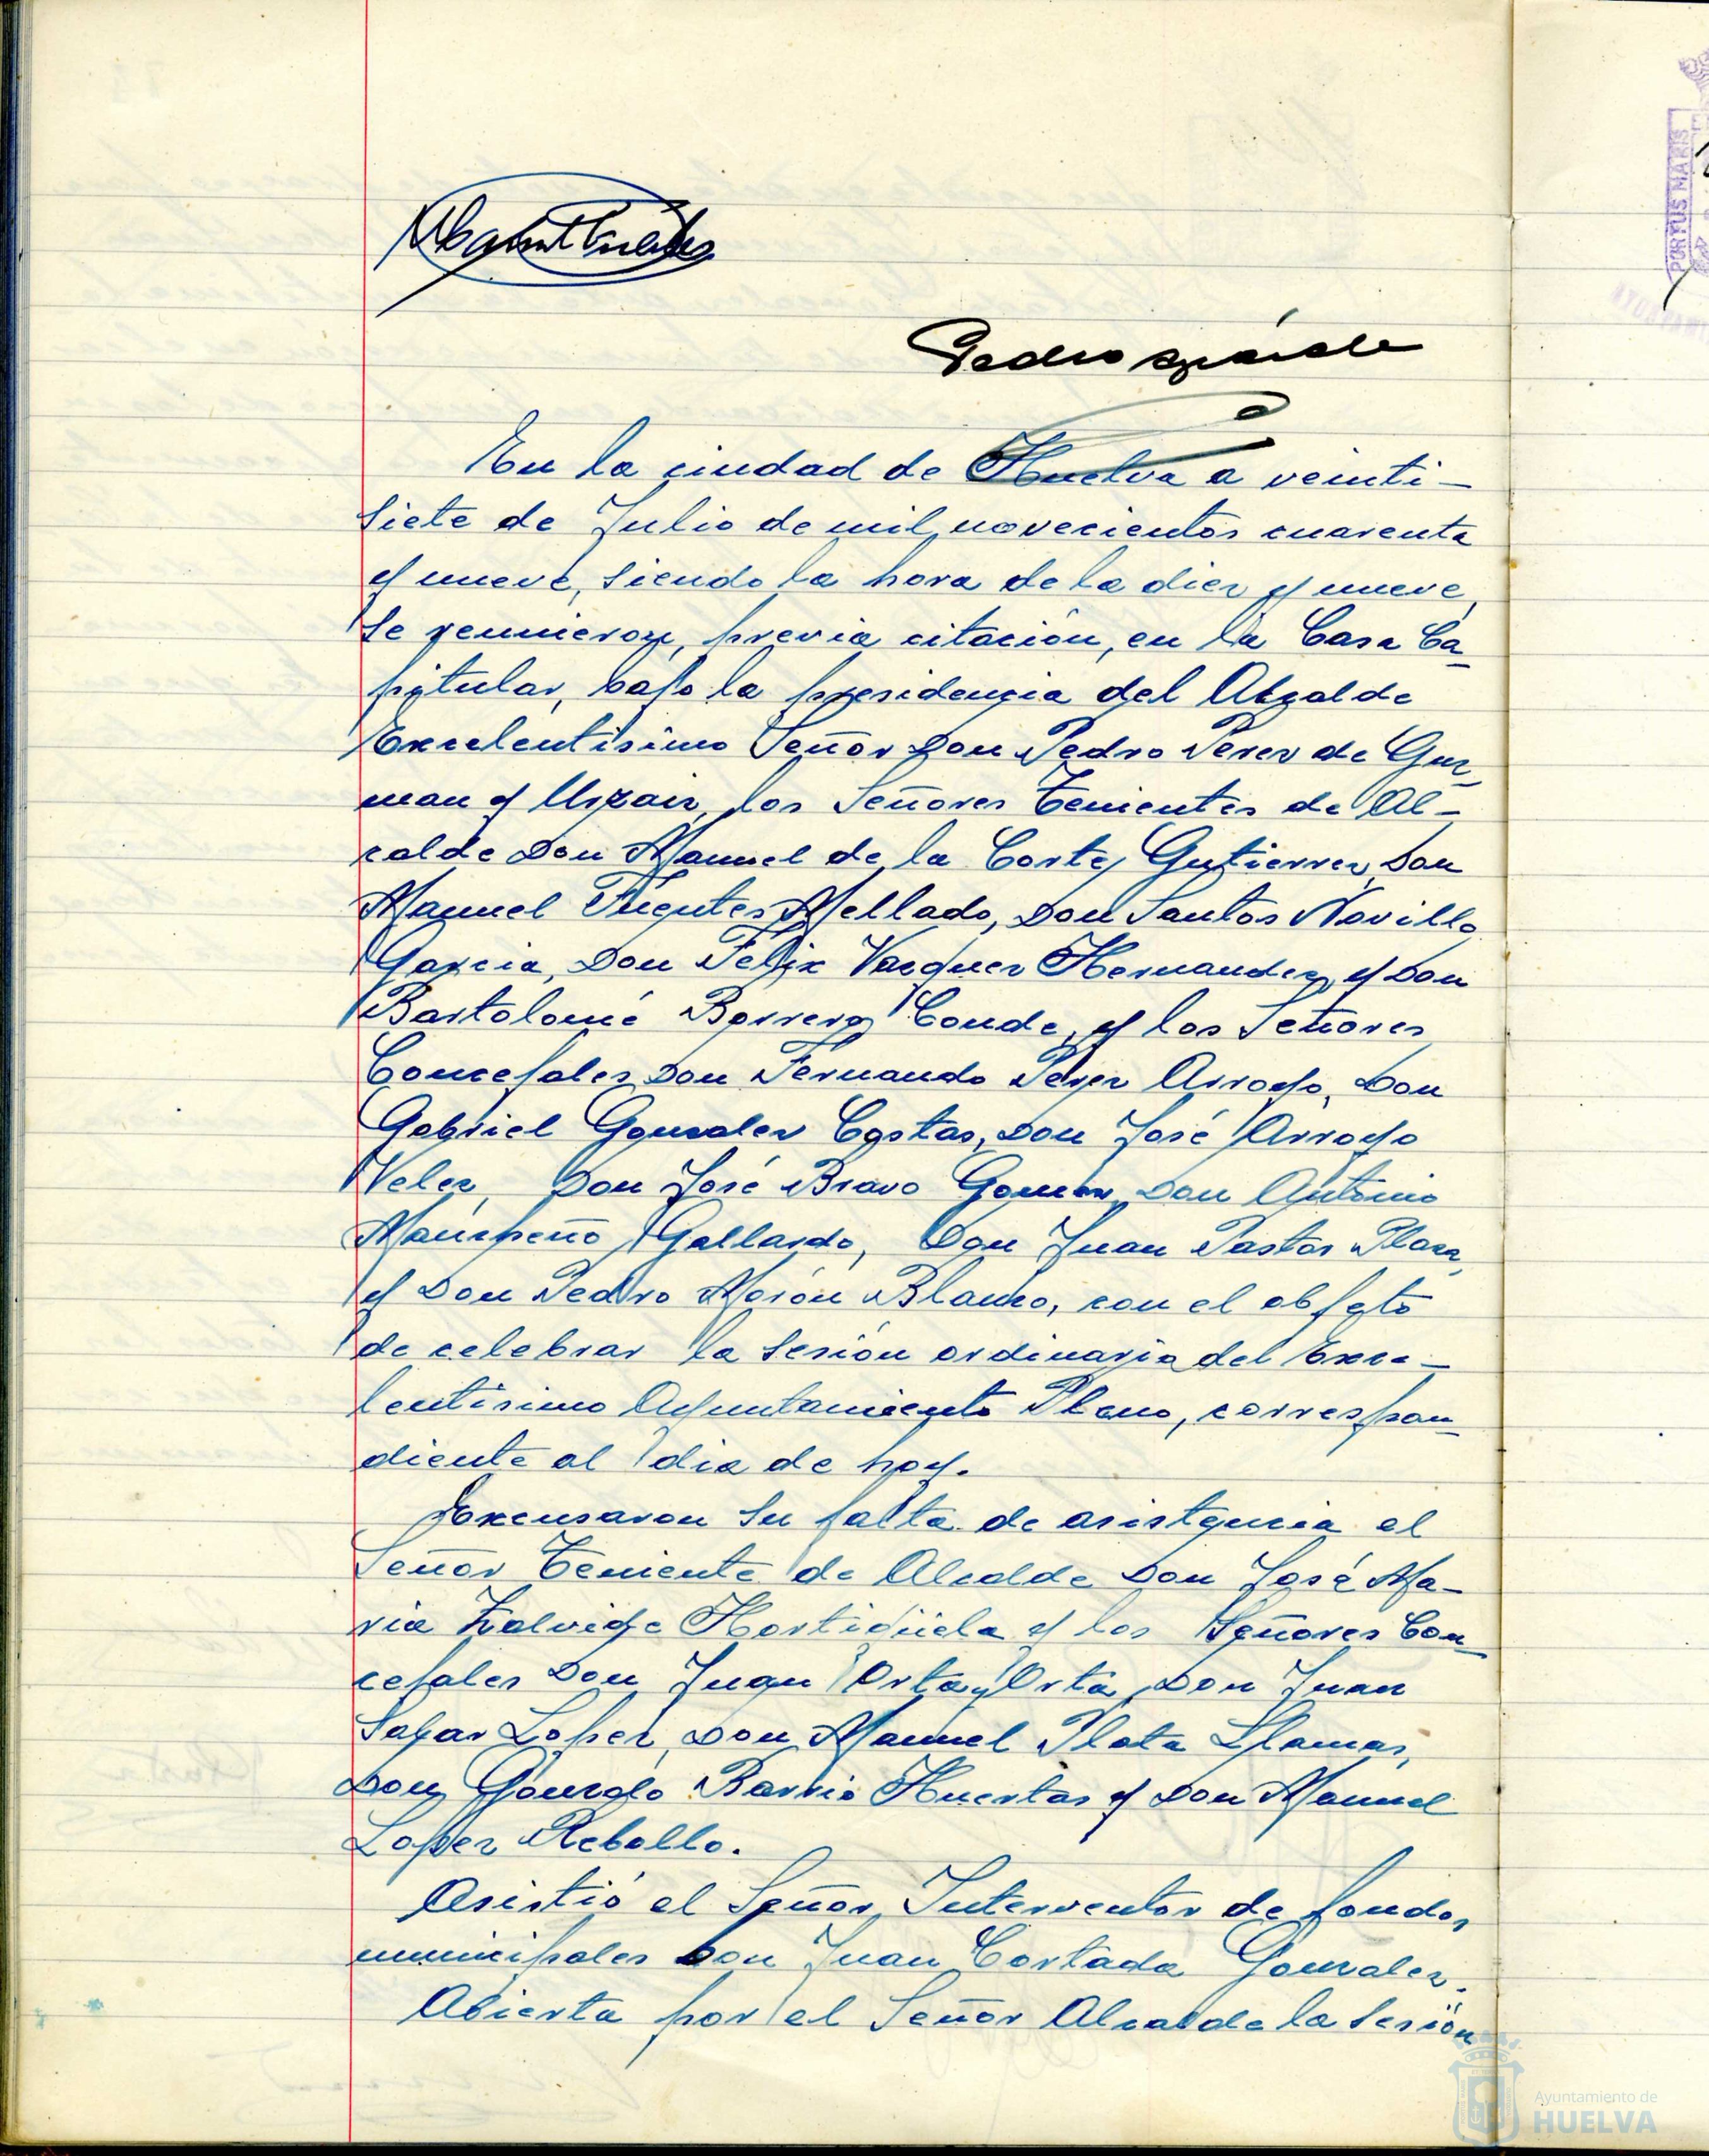 En la ciudad de Huelva a veinti-
siete de Julio de mil novecientos cuarenta
y nueve, siendo la hora de la diez y nueve,
se reunieron, previa citación, en la Casa Ca-
pitular, bajo la presidencia del Alcalde
Excelentisimo Señor Don Pedro Perez de Guz-
man y Urzaiz, los Señores Tenientes de Al-
calde Don Manuel de la Corte Gutierrez, Don
Manuel Fuentes Mellado, Don Santos Novillo
Garcia, Don Felix Vazquez Hernandez, y Don
Bartolomé Borrero Conde, y los Señores
Concejales Don Fernando Perez Arroyo, Don
Gabriel Gonzalez Costas, Don José Arroyo
Velez, Don José Bravo Gomez, Don Antonio
Mauspeño Gallardo, Don Juan Pastor Plaza,
y Don Pedro Morón Blanco, con el objeto
de celebrar la sesión ordinaria del Exce-
lentisimo Ayuntamiento Pleno, correspon-
diente al dia de hoy.
Excusaron su falta de asistencia el
Señor Teniente de Alcalde Don José Ma-
ria Zalvide Hortigüela y los Señores Con-
cejales Don Juan Orta y Orta, Don Juan
Sajar Lopez, Don Manuel Plata Llamas,
Don Gonzalo Barrio Huertas y Don Manuel
Lopez Rebollo.
Asistió el Señor Interventor de fondos
municipales Don Juan Cortada Gonzalez.
Abierta por el Señor Alcalde la sesión
PORTUS MARIS
Ayuntamiento de
HUELVA